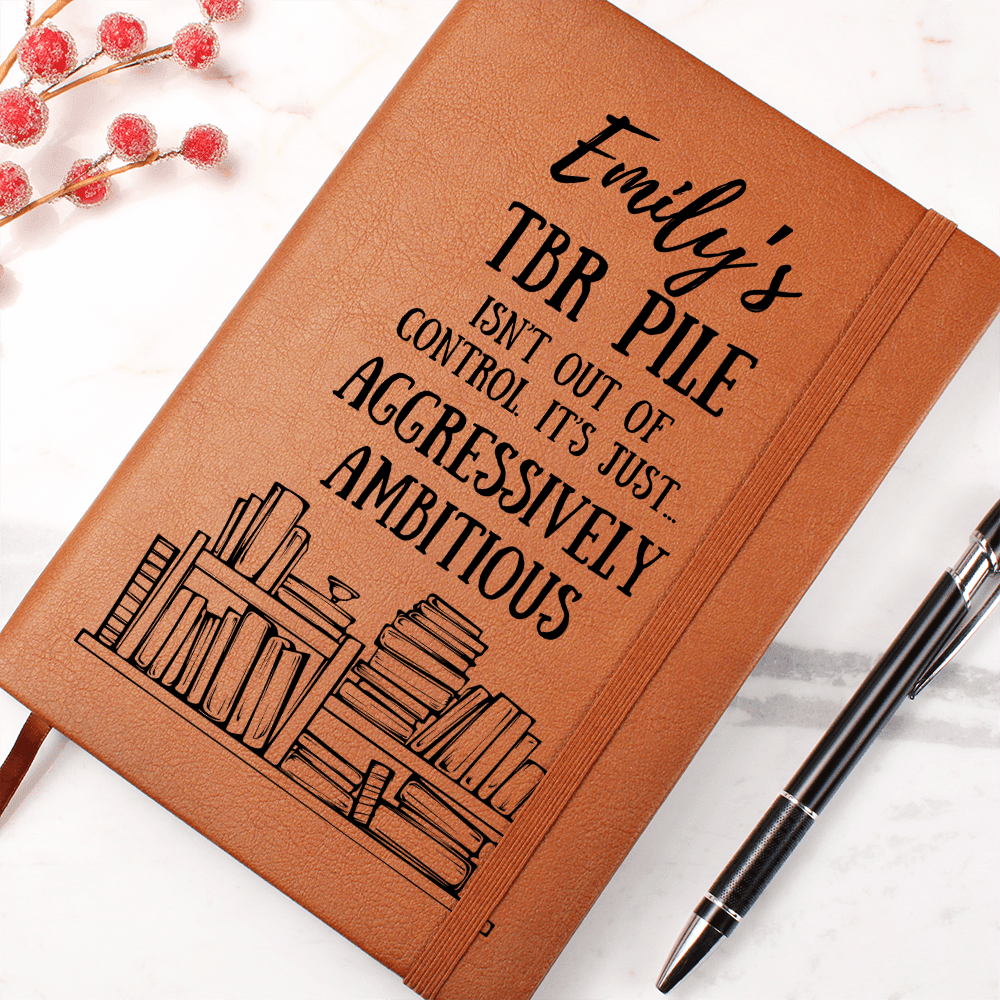 Emily's
TBR PILE
ISN'T OUT OF
CONTROL. IT'S JUST...
AGGRESSIVELY
AMBITIOUS